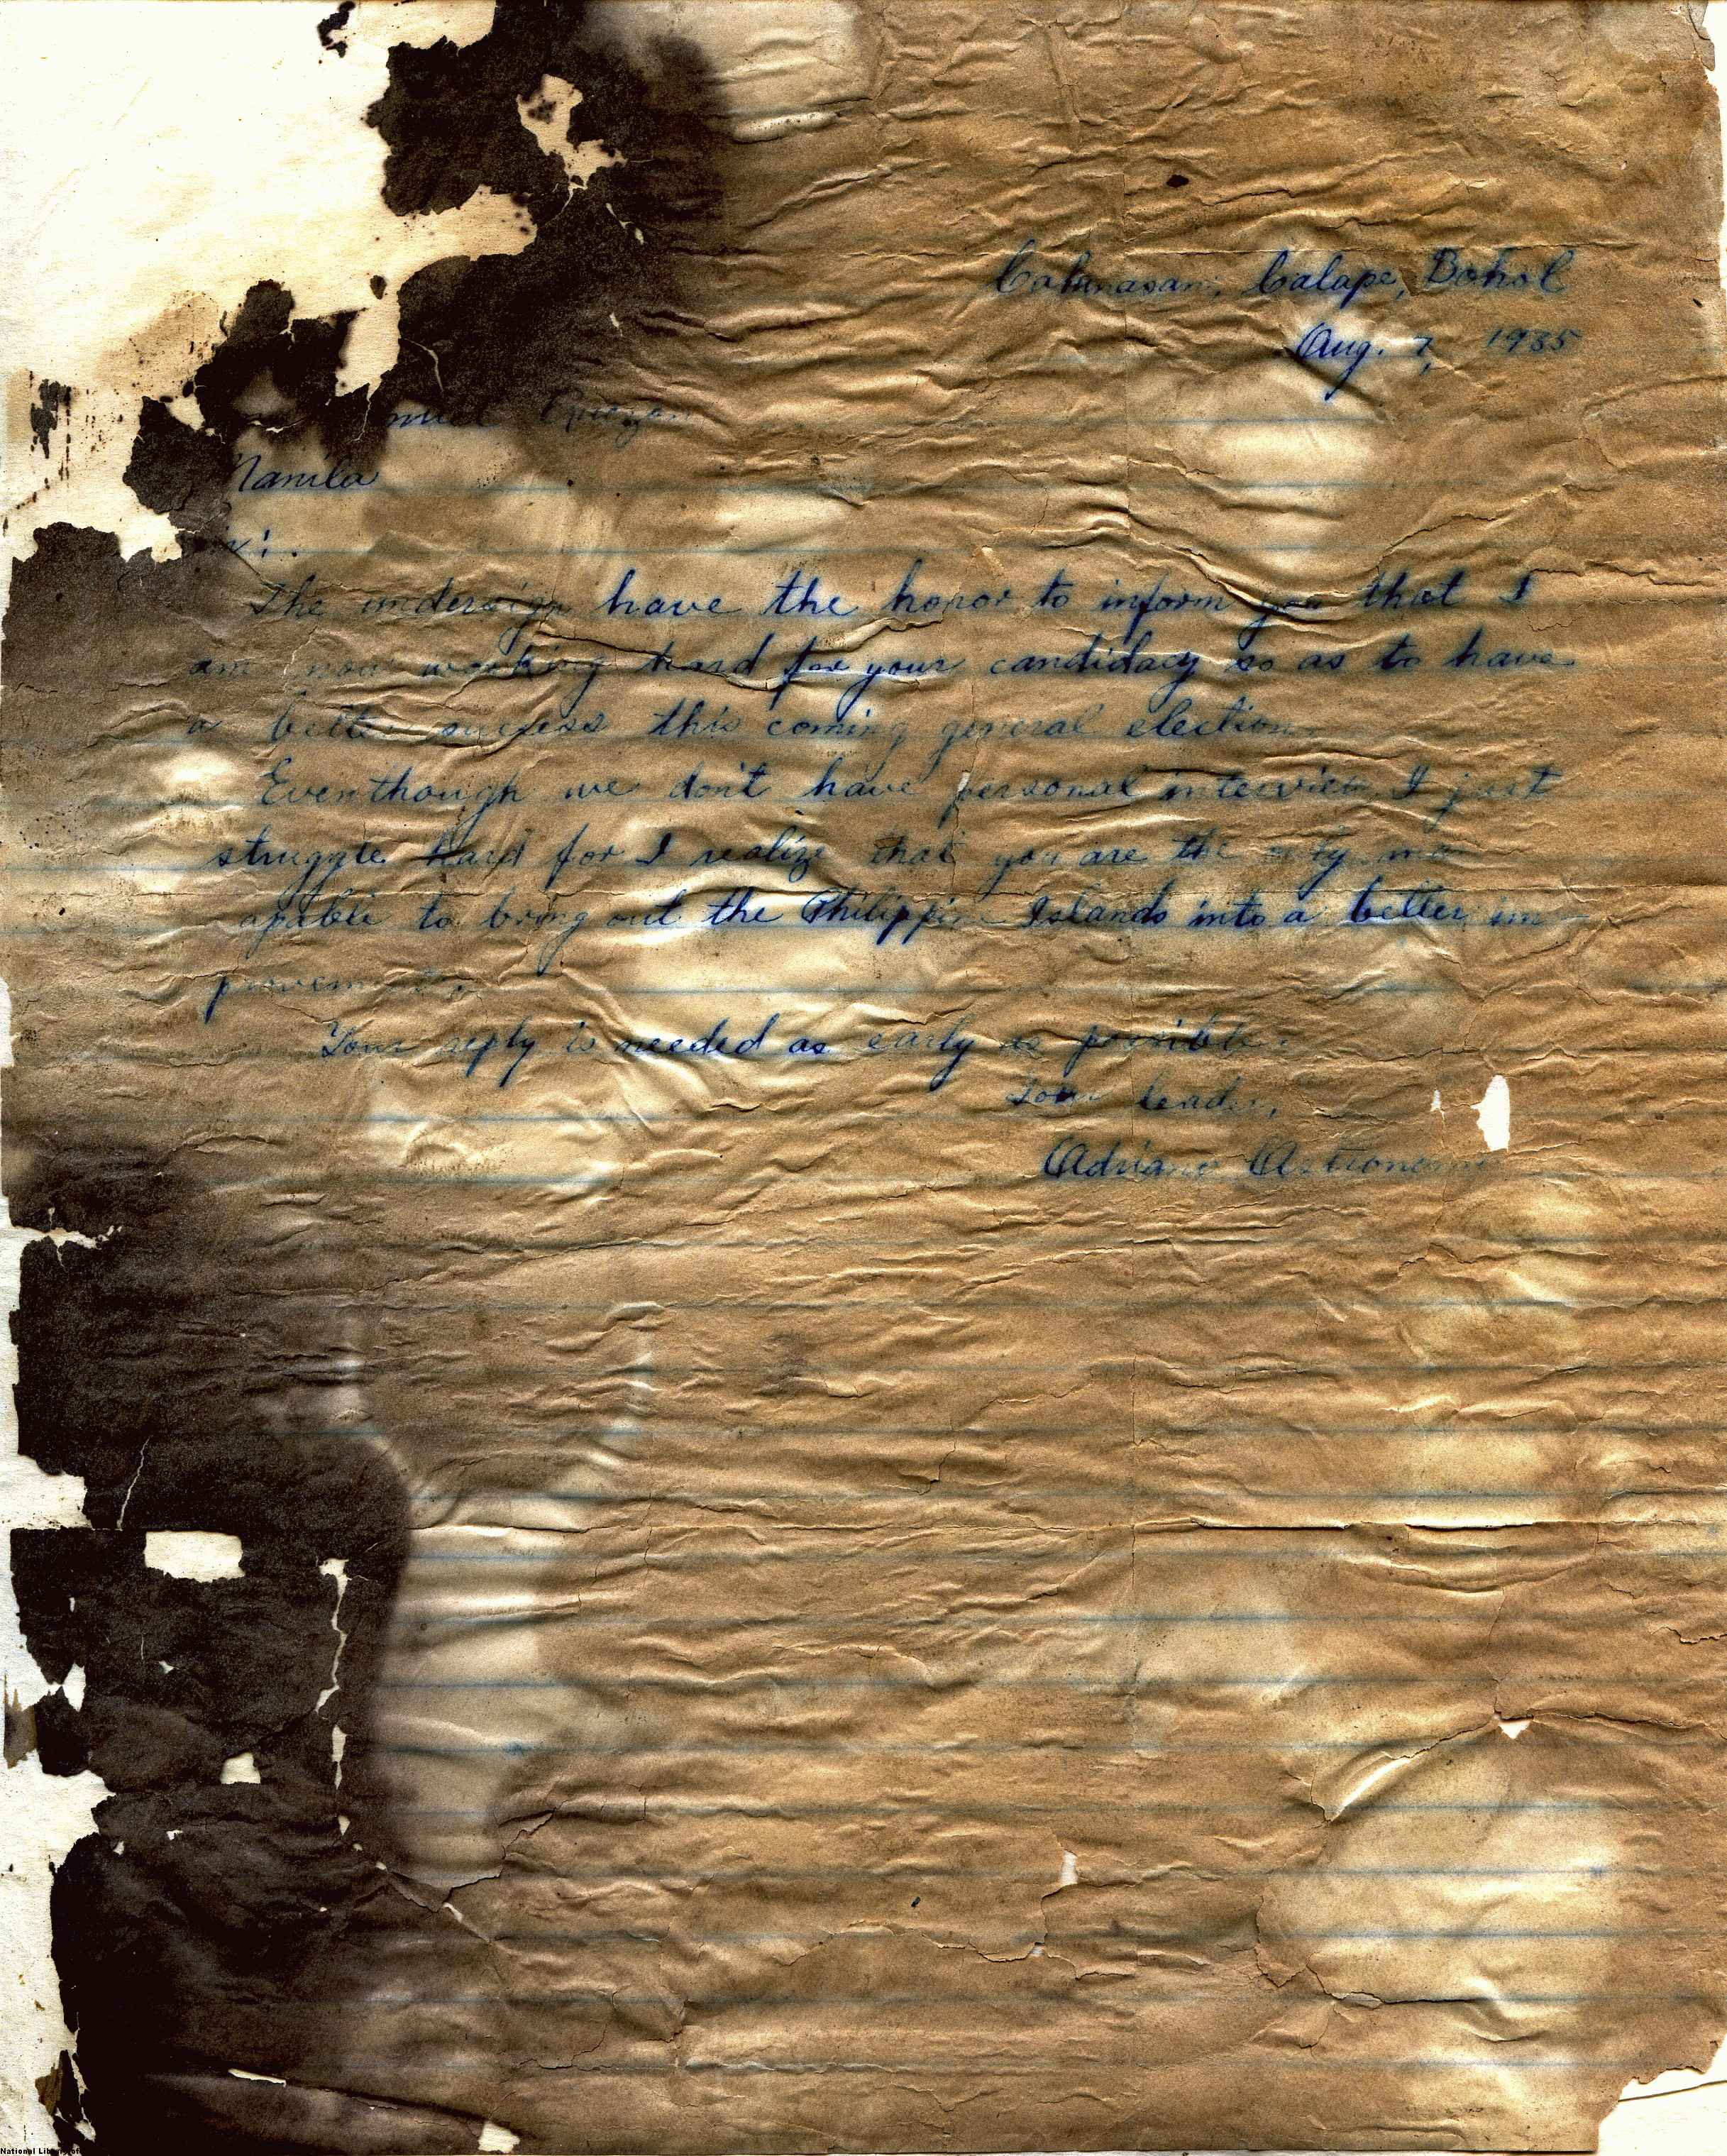 Cabunasan, Calape, Bohol
Aug. 7, 1935
Quezon
Manila
The undersign have the honor to inform you that I
am now working hard for your candidacy so as to have
a better success this coming general election.
Eventhough we don't have personal interview I just
struggle hard for I realize that you are the only man
apable to bring out the Philippine Islands into a better im-
provement.
Your reply is needed as early as possible.
Your leader,
Adriano
National Libr